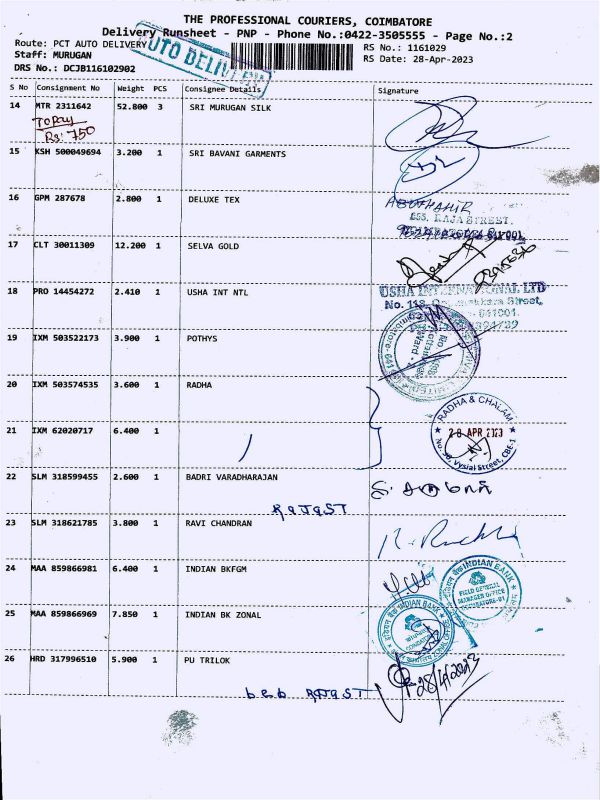 THE PROFESSIONAL COURIERS, COIMBATORE
Delivery Runsheet - PNP - Phone No.:0422-3505555 - Page No.:2
Route: PCT AUTO DELIVERY
RS No.: 1161029
Staff: MURUGAN
RS Date: 28-Apr-2023
DRS No.: DCJB116102902
AUTO DELIVE
S No Consignment No Weight PCS Consignee Details Signature
14 MTR 2311642 52.800 3 SRI MURUGAN SILK
TO Pay
Rs: 750
15 KSH 500049694 3.200 1 SRI BAVANI GARMENTS
16 GPM 287678 2.800 1 DELUXE TEX
RAJA STREET,
17 CLT 30011309 12.200 1 SELVA GOLD
18 PRO 14454272 2.410 1 USHA INT NTL
USHA INTERNATIONAL LTD
Street,
641001
19 IXM 503522173 3.900 1 POTHYS
20 IXM 503574535 3.600 1 RADHA
RADHA & CHALAM
28 APR 2023
Vysial Street, CBE-1
21 IXM 62020717 6.400 1
22 SLM 318599455 2.600 1 BADRI VARADHARAJAN
23 SLM 318621785 3.800 1 RAVI CHANDRAN
24 MAA 859866981 6.400 1 INDIAN BKFGM
INDIAN BANK
FIELD GENERAL
MANAGER OFFICE
25 MAA 859866969 7.850 1 INDIAN BK ZONAL
INDIAN BANK
26 HRD 317996510 5.900 1 PU TRILOK
28/4/2023